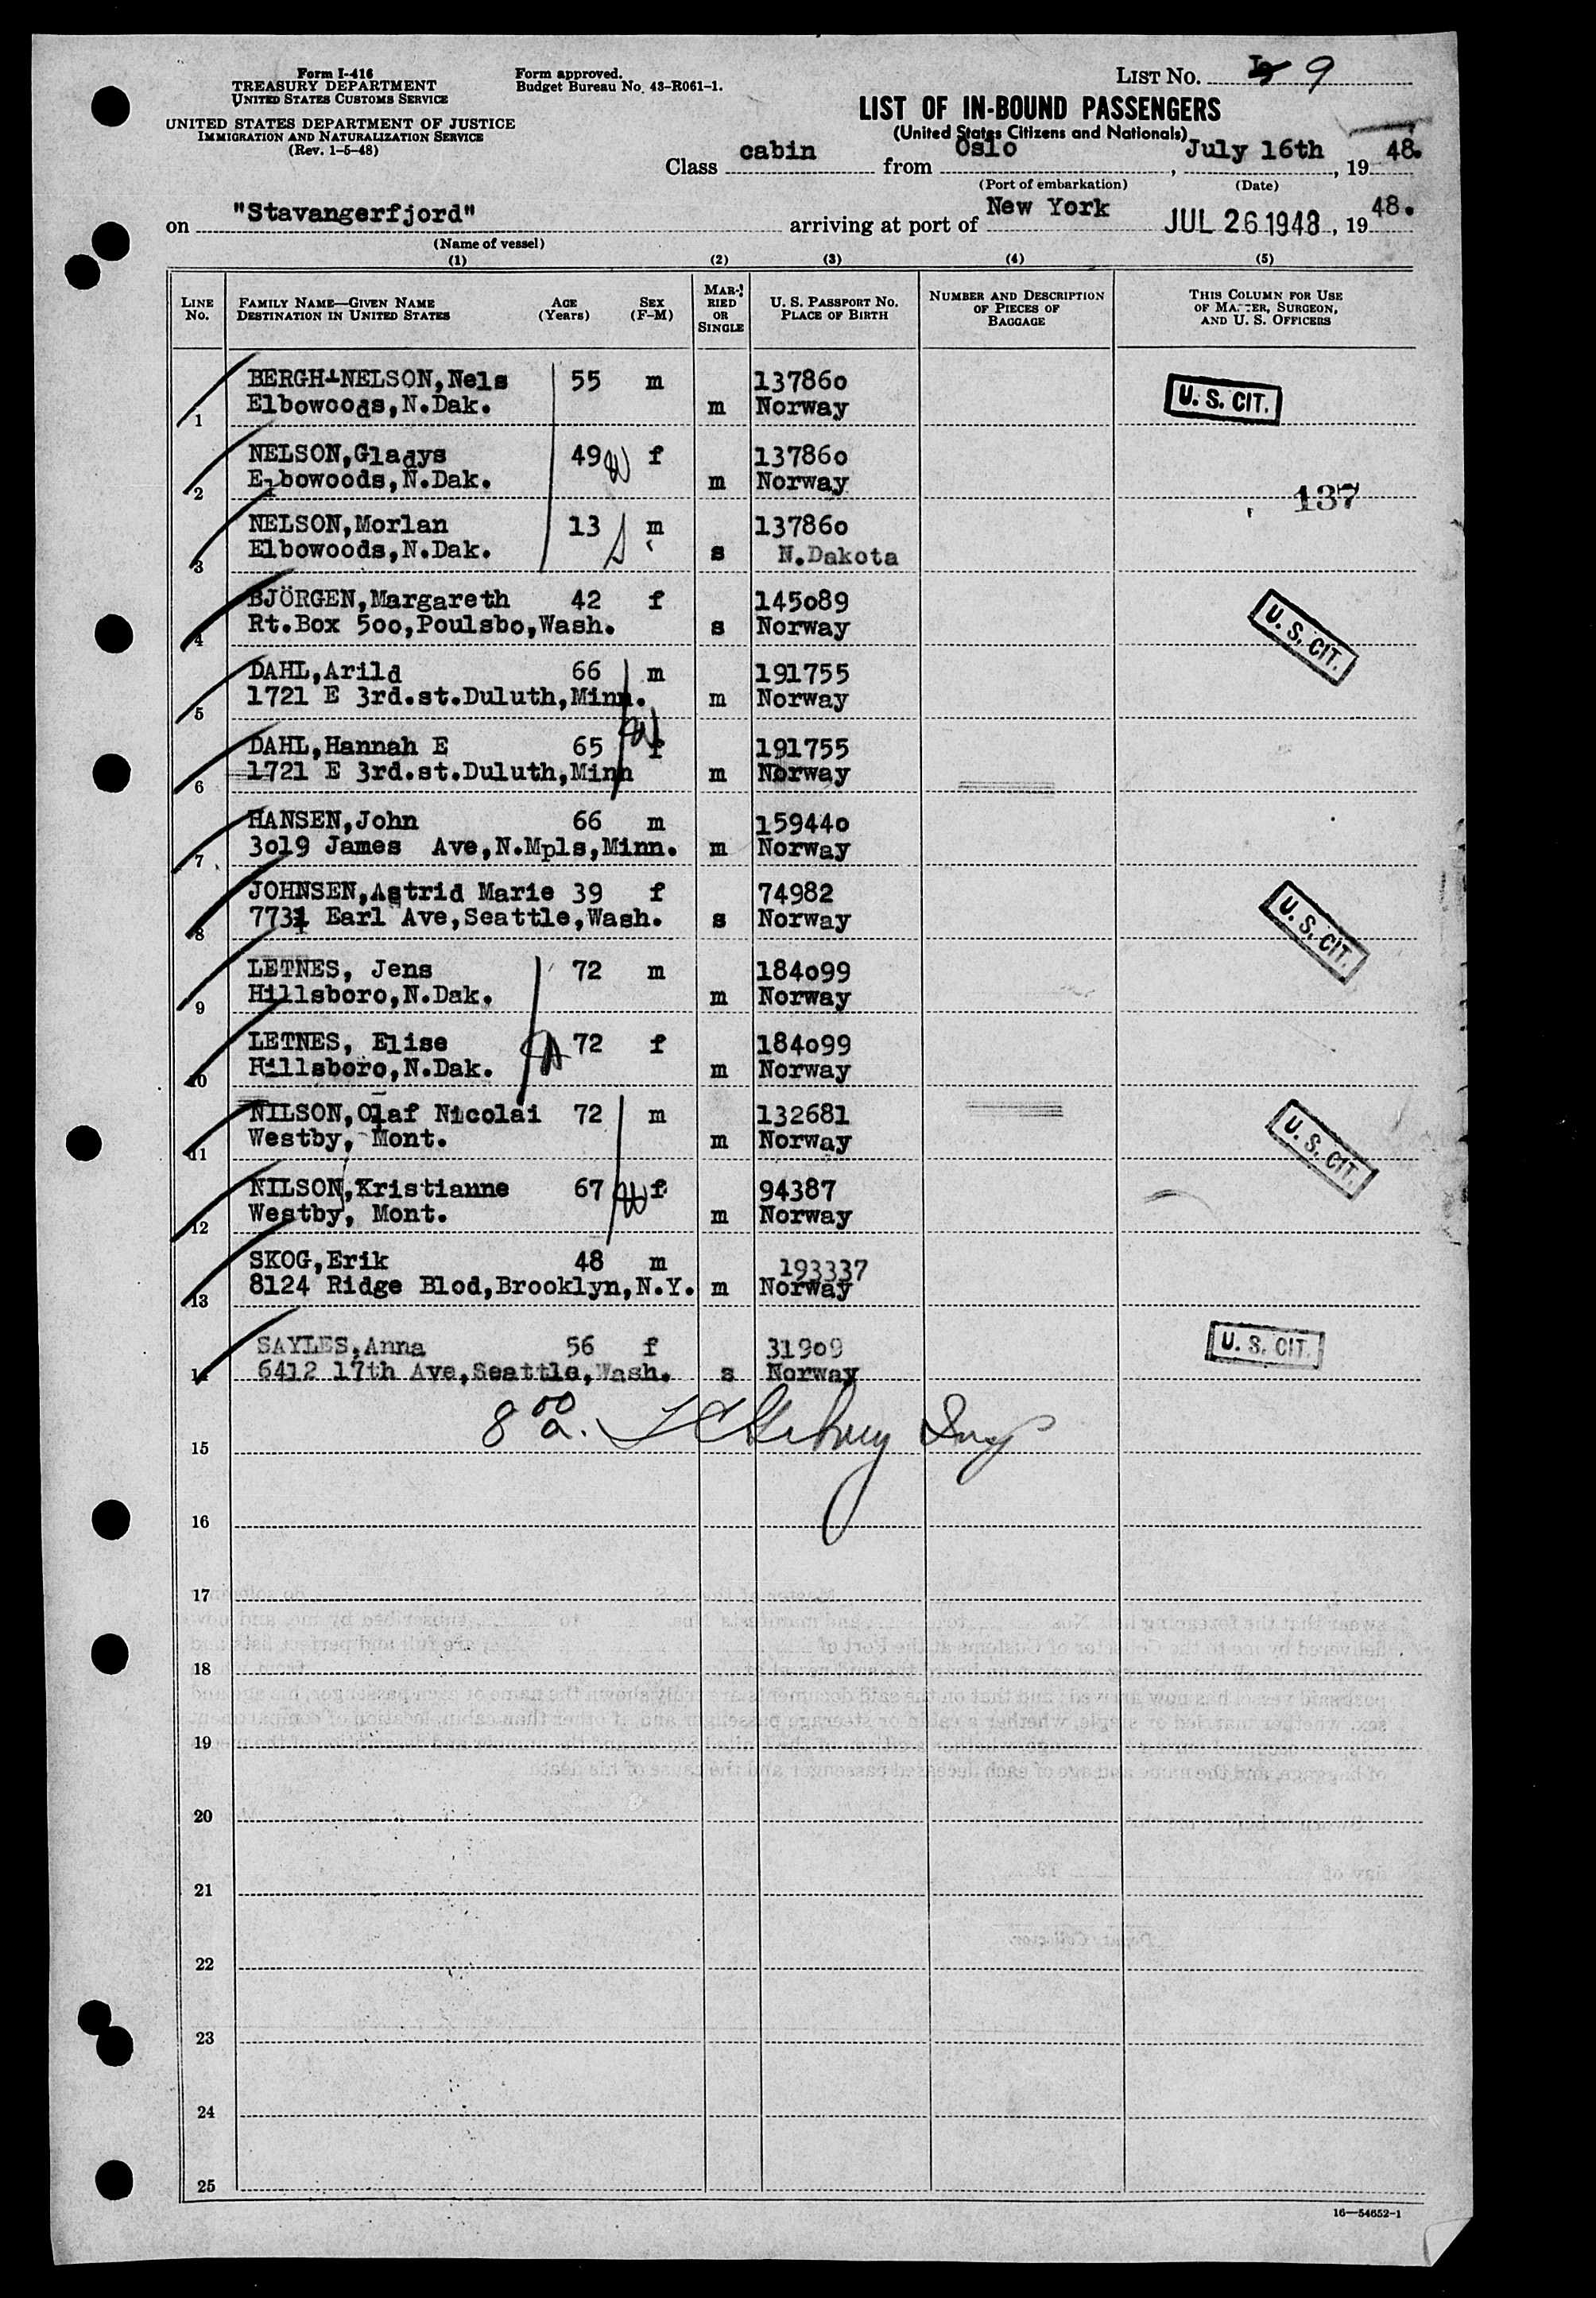 Form I-416
TREASURY DEPARTMENT
UNITED STATES CUSTOMS SERVICE
UNITED STATES DEPARTMENT OF JUSTICE
IMMIGRATION AND NATURALIZATION SERVICE
(Rev. 1-5-48)
Form approved.
Budget Bureau No. 43-R061-1.
LIST NO. 9
LIST OF IN-BOUND PASSENGERS
(United States Citizens and Nationals)
Class cabin from Oslo, July 16th, 1948.
(Port of embarkation) (Date)
on "Stavangerfjord" arriving at port of New York JUL 26 1948, 1948.
(Name of vessel)
(1) (2) (3) (4) (5)
LINE NO.
FAMILY NAME—GIVEN NAME
DESTINATION IN UNITED STATES
AGE (Years)
SEX (F-M)
MARRIED OR SINGLE
U. S. PASSPORT NO.
PLACE OF BIRTH
NUMBER AND DESCRIPTION OF PIECES OF BAGGAGE
THIS COLUMN FOR USE OF MASTER, SURGEON, AND U. S. OFFICERS
BERGH-NELSON,Nels 55 m 137860
1 Elbowoods,N.Dak. m Norway U. S. CIT.
NELSON,Gladys 49 f 137860
2 Elbowoods,N.Dak. m Norway 137
NELSON,Morlan 13 m 137860
3 Elbowoods,N.Dak. s N.Dakota
BJÖRGEN,Margareth 42 f 145089
4 Rt.Box 500,Poulsbo,Wash. s Norway U. S. CIT.
DAHL,Arild 66 m 191755
5 1721 E 3rd.st.Duluth,Minn. m Norway
DAHL,Hannah E 65 f 191755
6 1721 E 3rd.st.Duluth,Minn m Norway
HANSEN,John 66 m 159440
7 3019 James Ave,N.Mpls,Minn. m Norway
JOHNSEN,Astrid Marie 39 f 74982
8 7731 Earl Ave,Seattle,Wash. s Norway U. S. CIT.
LETNES, Jens 72 m 184099
9 Hillsboro,N.Dak. m Norway
LETNES, Elise 72 f 184099
10 Hillsboro,N.Dak. m Norway
NILSON,Olaf Nicolai 72 m 132681
11 Westby, Mont. m Norway U. S. CIT.
NILSON,Kristianne 67 f 94387
12 Westby, Mont. m Norway
SKOG,Erik 48 m 193337
13 8124 Ridge Blod,Brooklyn,N.Y. m Norway
SAYLES,Anna 56 f 31909
14 6412 17th Ave,Seattle,Wash. s Norway U. S. CIT.
8 00 a.
15
16
17
18
19
20
21
22
23
24
25
16—54652-1